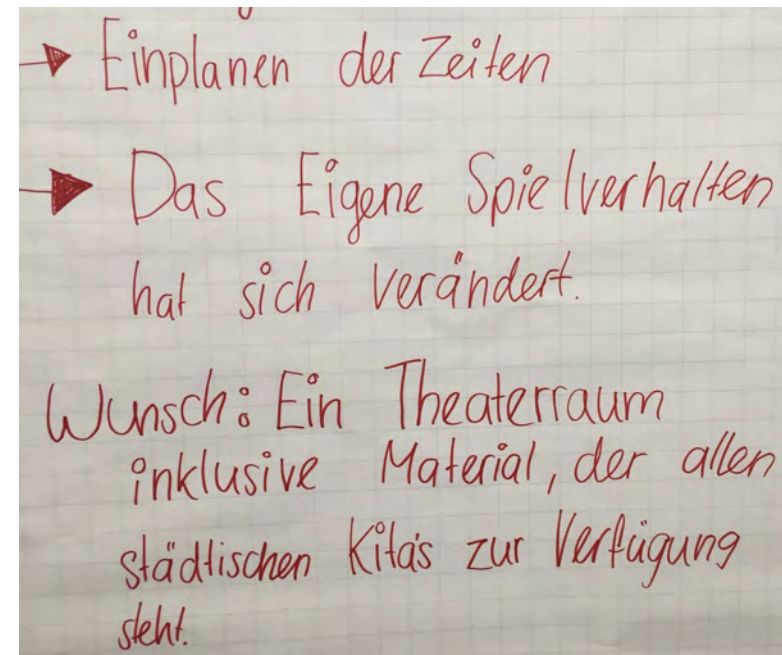 → Einplanen der Zeiten
→ Das Eigene Spielverhalten
hat sich verändert.
Wunsch: Ein Theaterraum
inklusive Material, der allen
städtischen Kita's zur Verfügung
steht.